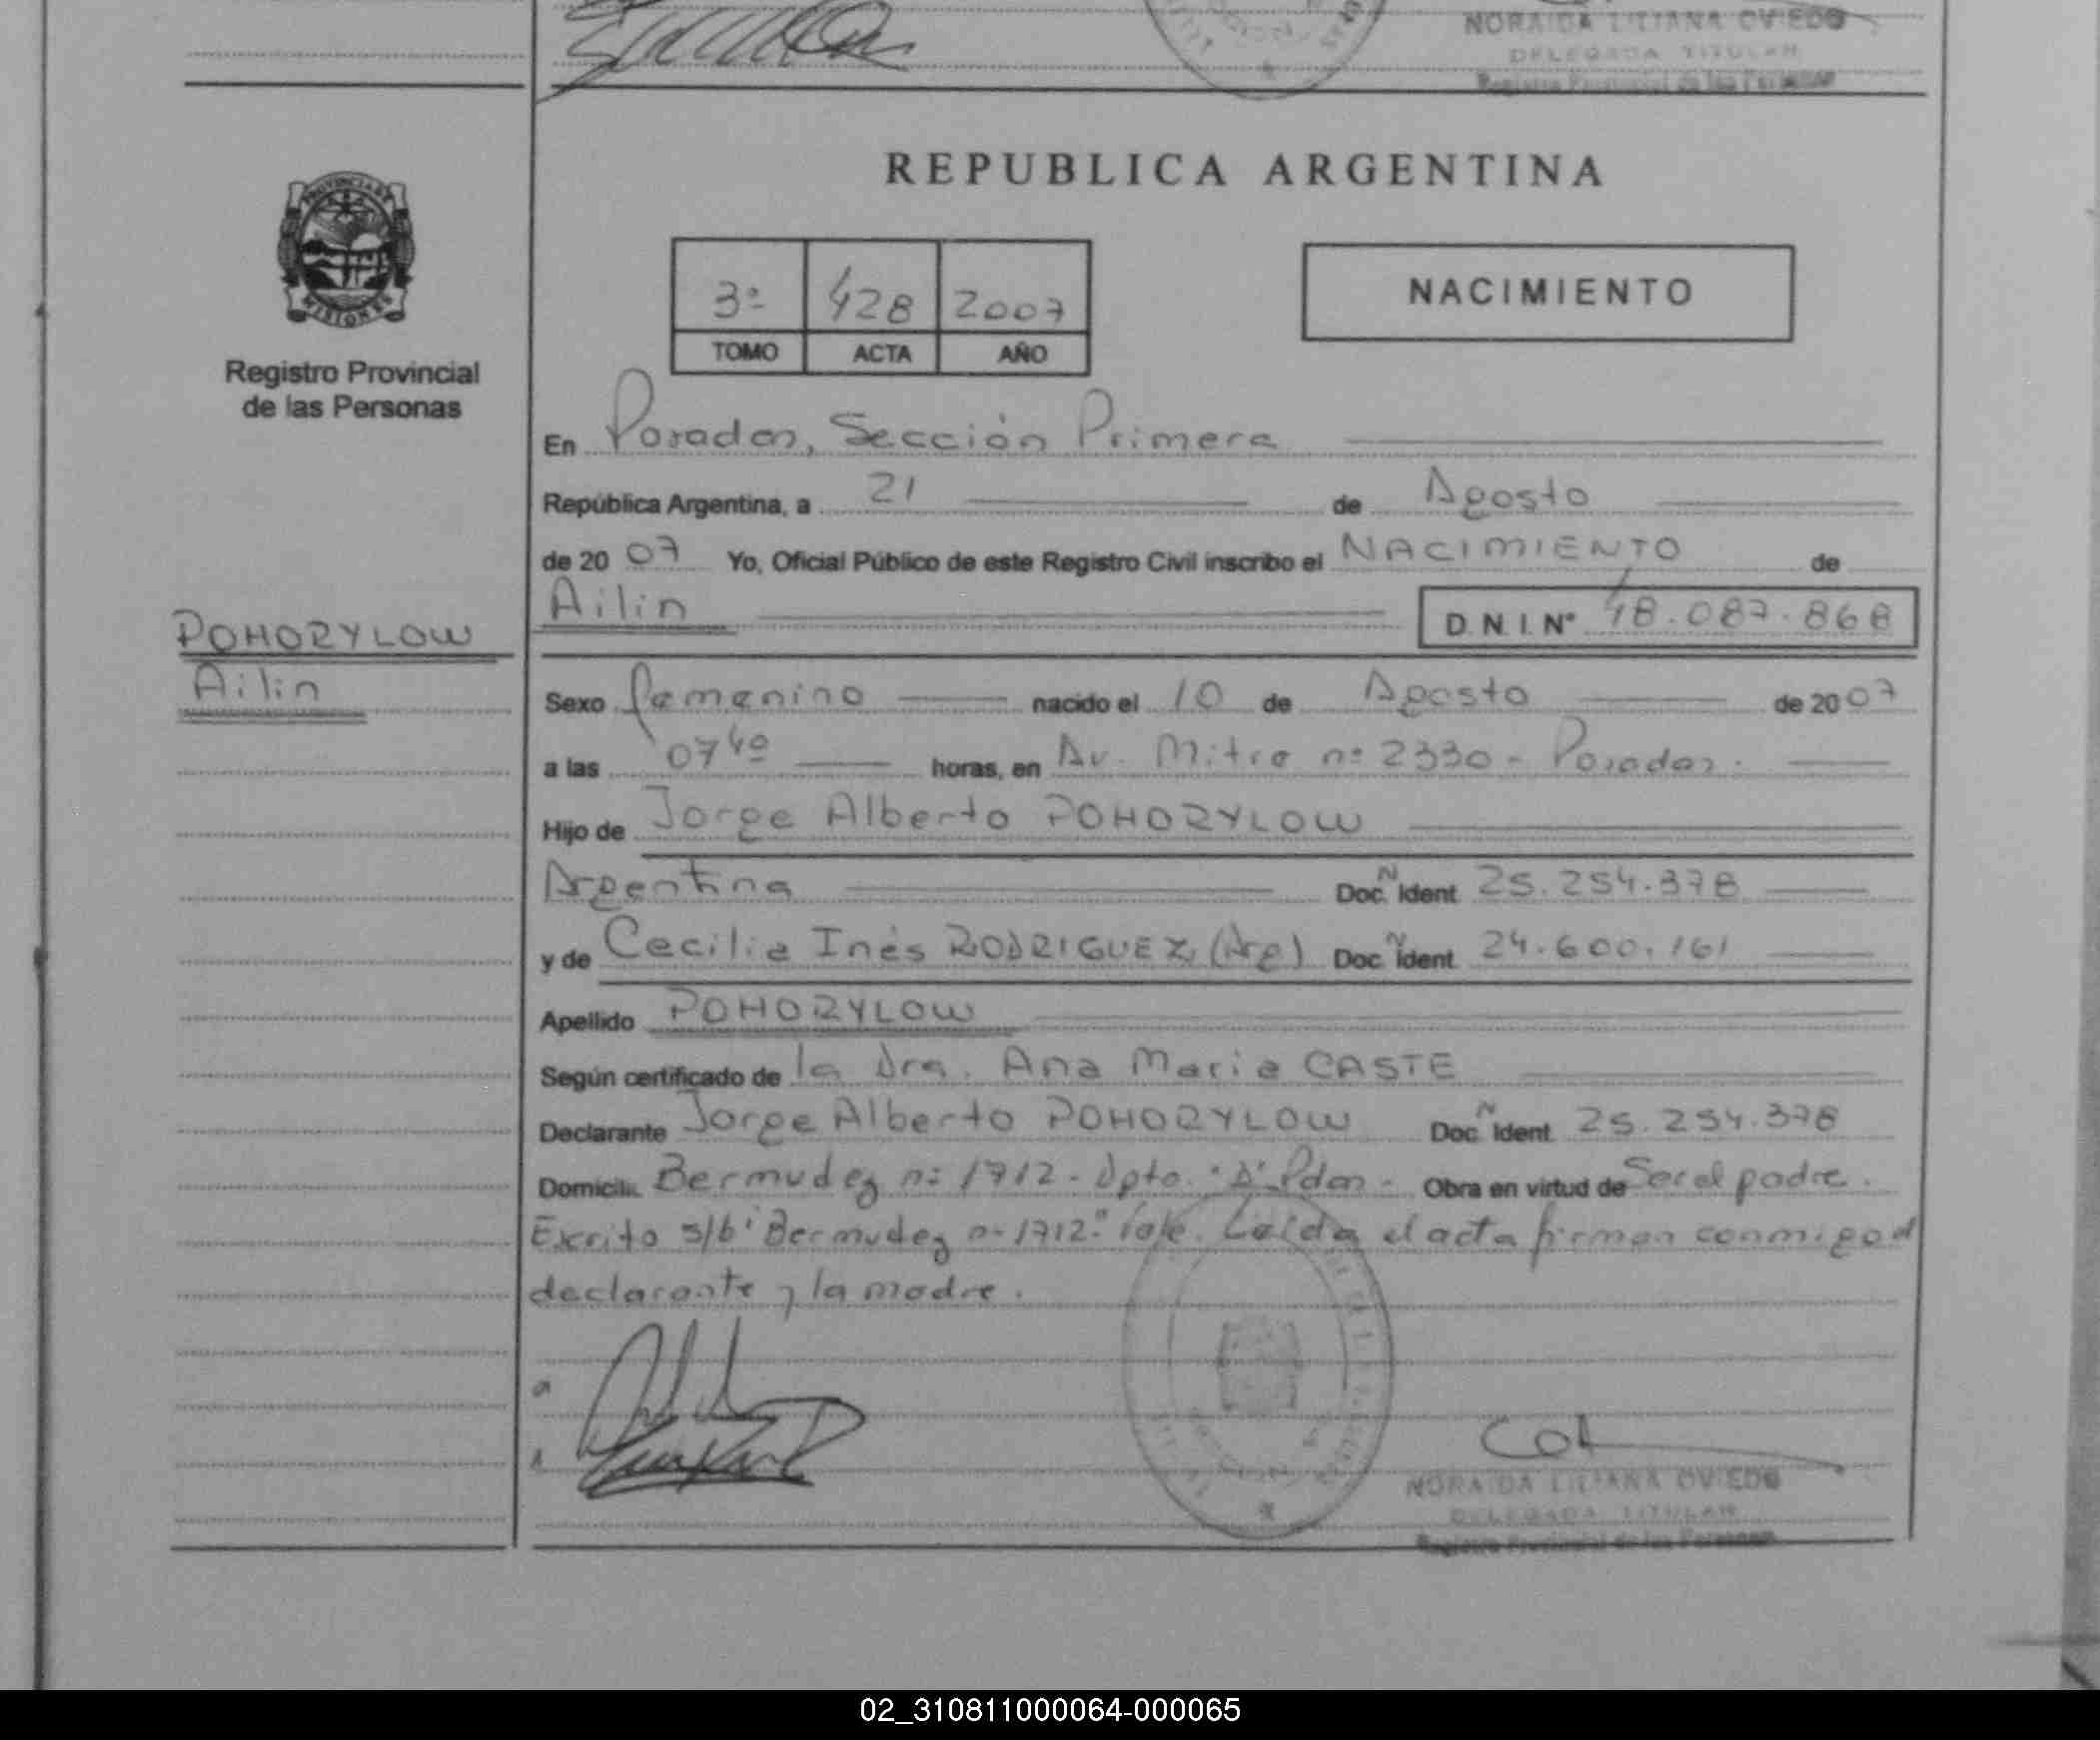 NORAIDA LILIANA OVIEDO
DELEGADA TITULAR
Registro Provincial de las Personas
REPUBLICA ARGENTINA
PROVINCIA DE
MISIONES
Registro Provincial
de las Personas
3º 428 2007
TOMO ACTA AÑO
NACIMIENTO
En Posadas, Sección Primera
República Argentina, a 21 de Agosto
de 20 07 Yo, Oficial Público de este Registro Civil inscribo el NACIMIENTO de
Ailin D.N.I. Nº 48.087.868
POHORYLOW
Ailin
Sexo femenino nacido el 10 de Agosto de 20 07
a las 07 40 horas, en Av. Mitre nº 2330 - Posadas.
Hijo de Jorge Alberto POHORYLOW
Argentina Doc. N Ident 25.254.378
y de Cecilia Inés RODRIGUEZ, (Arg) Doc. N Ident 24.600.161
Apellido POHORYLOW
Según certificado de la Dra. Ana Maria CASTE
Declarante Jorge Alberto POHORYLOW Doc. N Ident 25.254.378
Domicilio Bermudez nº 1712 - Dpto. "A" Pdas - Obra en virtud de Ser el padre.
Escrito s/b "Bermudez nº 1712" Vale. Leida el acta firman conmigo el
declarante y la madre.
NORAIDA LILIANA OVIEDO
DELEGADA TITULAR
Registro Provincial de las Personas
02_310811000064-000065